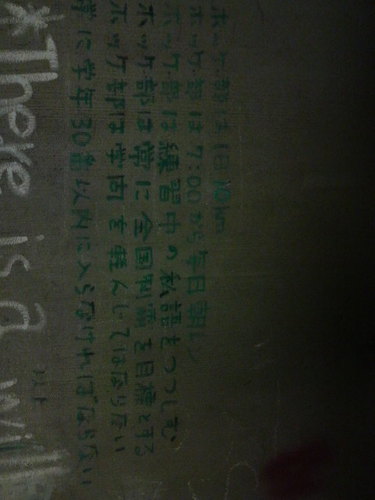 ホッケー部は1日10km
ホッケー部は7:00から毎日朝
ホッケー部は練習中の私語をつつしむ
ホッケー部は常に全国制覇を目標とする
ホッケー部は学問を軽んじてはならない
常に学年30番以内に入らなければならない
*There is a will